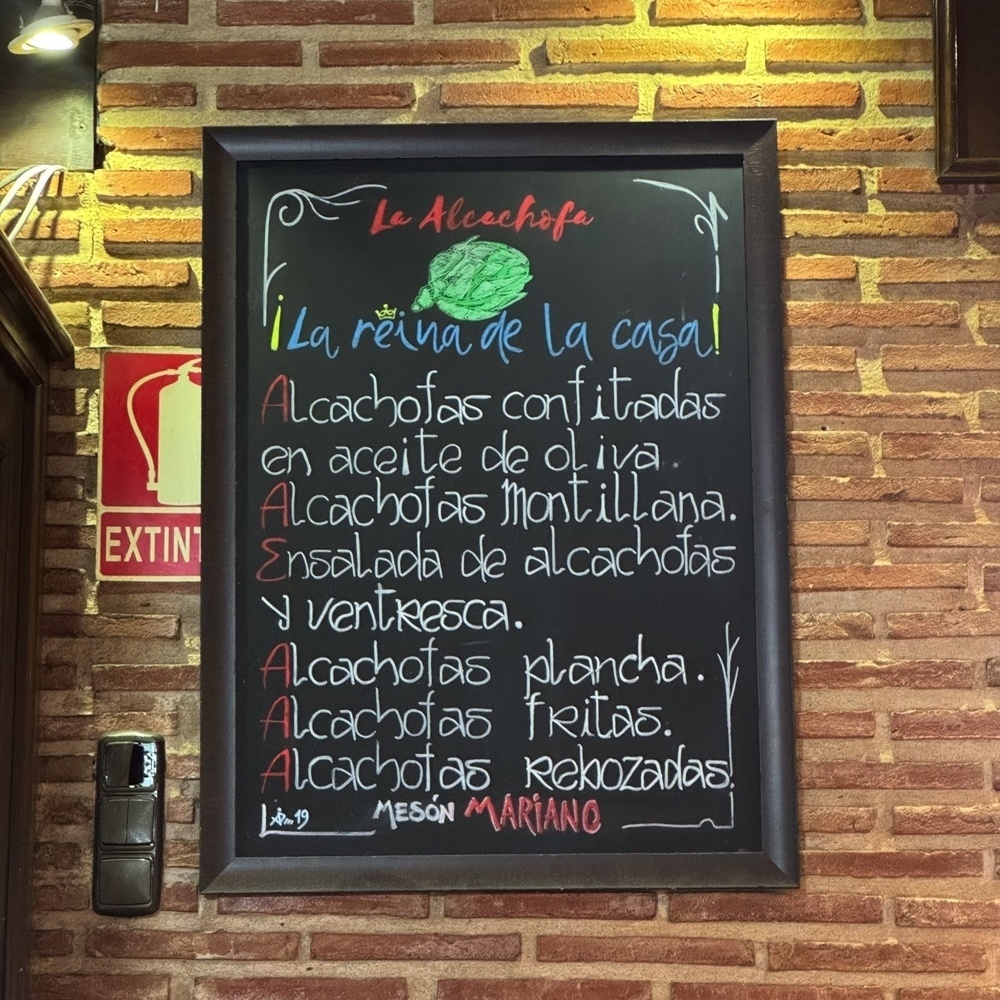 La Alcachofa
¡La reina de la casa!
Alcachofas confitadas
en aceite de oliva.
Alcachofas Montillana.
Ensalada de alcachofas
y ventresca.
Alcachofas plancha.
Alcachofas fritas.
Alcachofas Rebozadas.
19 MESÓN MARIANO
EXTINT